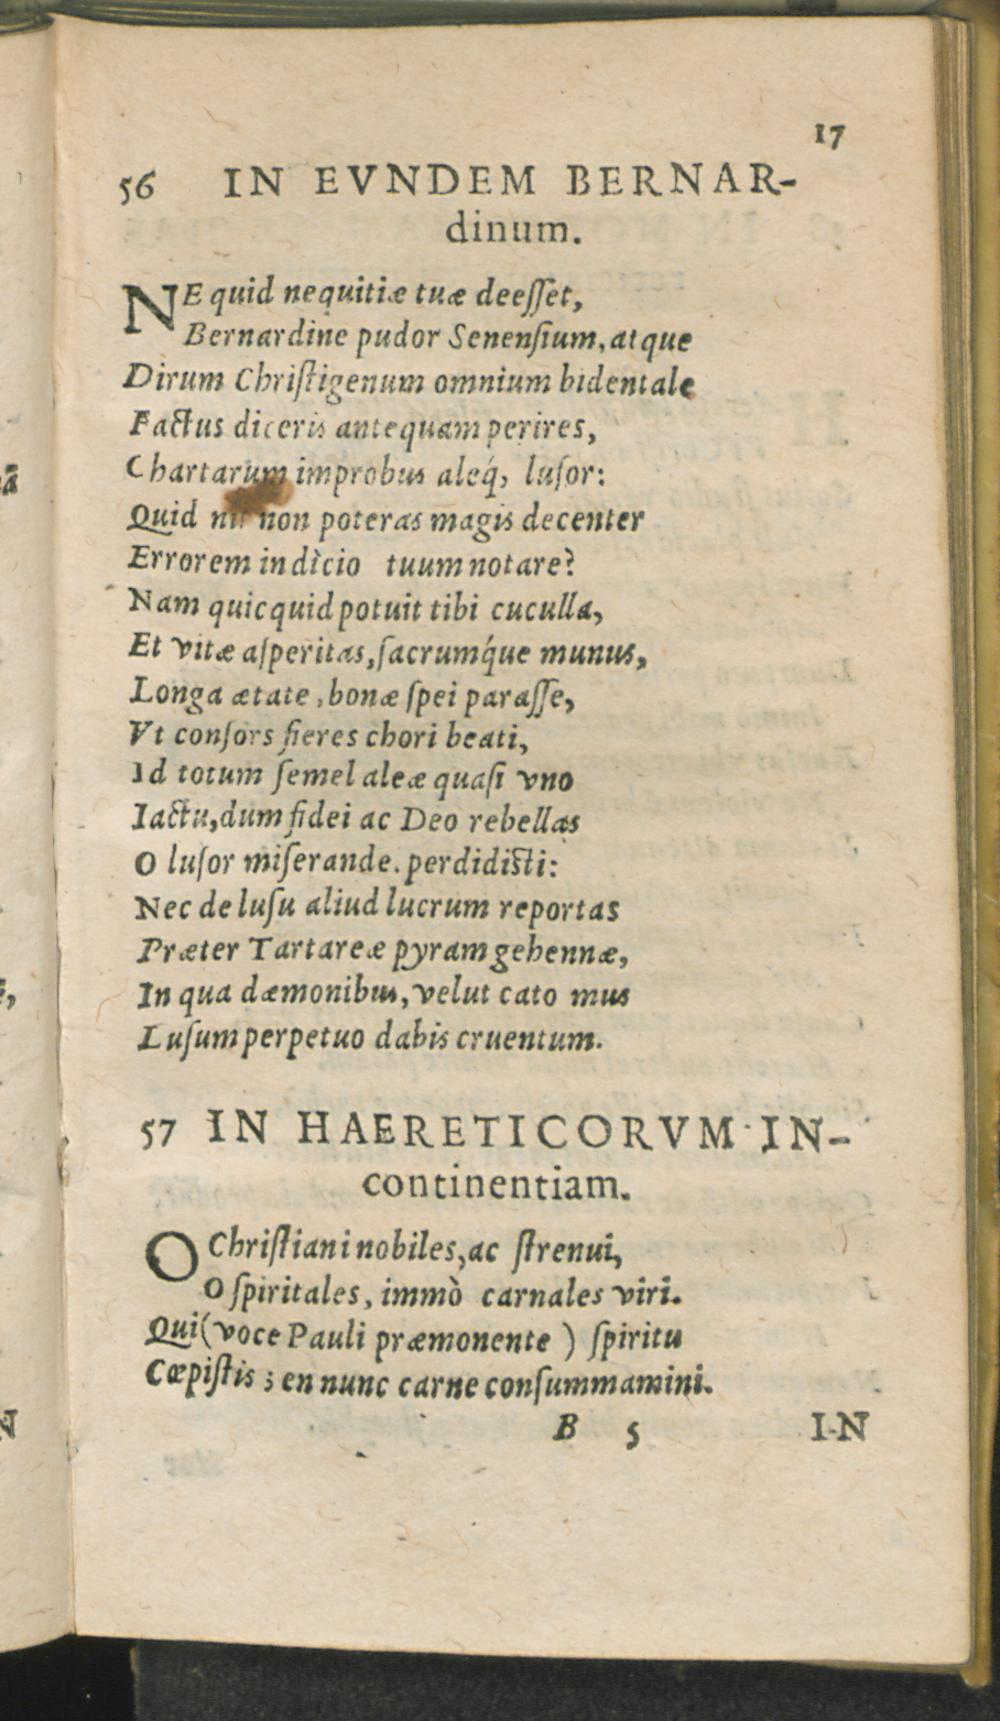 17
56 IN EVNDEM BERNAR-
dinum.
NE quid nequitiæ tuæ deeſſet,
Bernardine pudor Senenſium, atque
Dirum Chriſtigenum omnium bidentale
Factus diceris antequam perires,
Chartarum improbus aleq́, luſor:
Quid non poteras magis decenter
Errorem indìcio tuum notare?
Nam quicquid potuit tibi cuculla,
Et vitæ aſperitas, ſacrumq́ue munus,
Longa ætate, bonæ ſpei paraſſe,
Vt conſors fieres chori beati,
Id totum ſemel aleæ quaſi vno
Iactu, dum fidei ac Deo rebellas
O luſor miſerande. perdidiſti:
Nec de luſu aliud lucrum reportas
Præter Tartareæ pyram gehennæ,
In qua dæmonibus, velut cato mus
Luſum perpetuo dabis cruentum.
57 IN HAERETICORVM IN-
continentiam.
O Chriſtiani nobiles, ac ſtrenui,
O ſpiritales, immò carnales viri.
Qui (voce Pauli præmonente) ſpiritu
Cœpiſtis; en nunc carne conſummamini.
B 5 IN